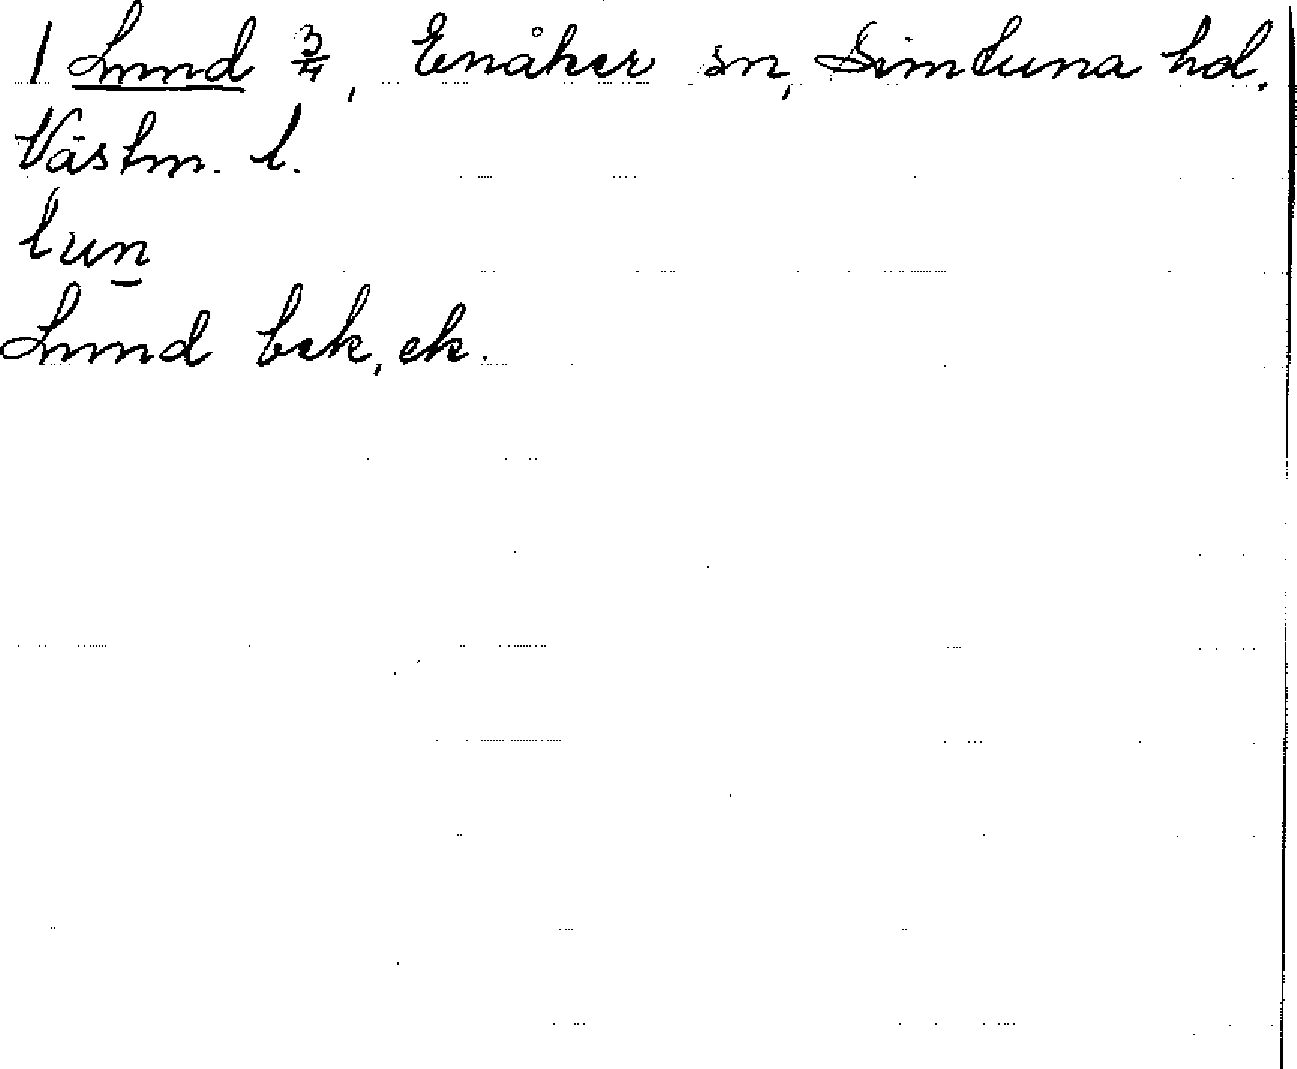 1 Lund 3/4, Enåker sn, Simtuna hd.
Västm. l.
lun
Lund bek, ek.